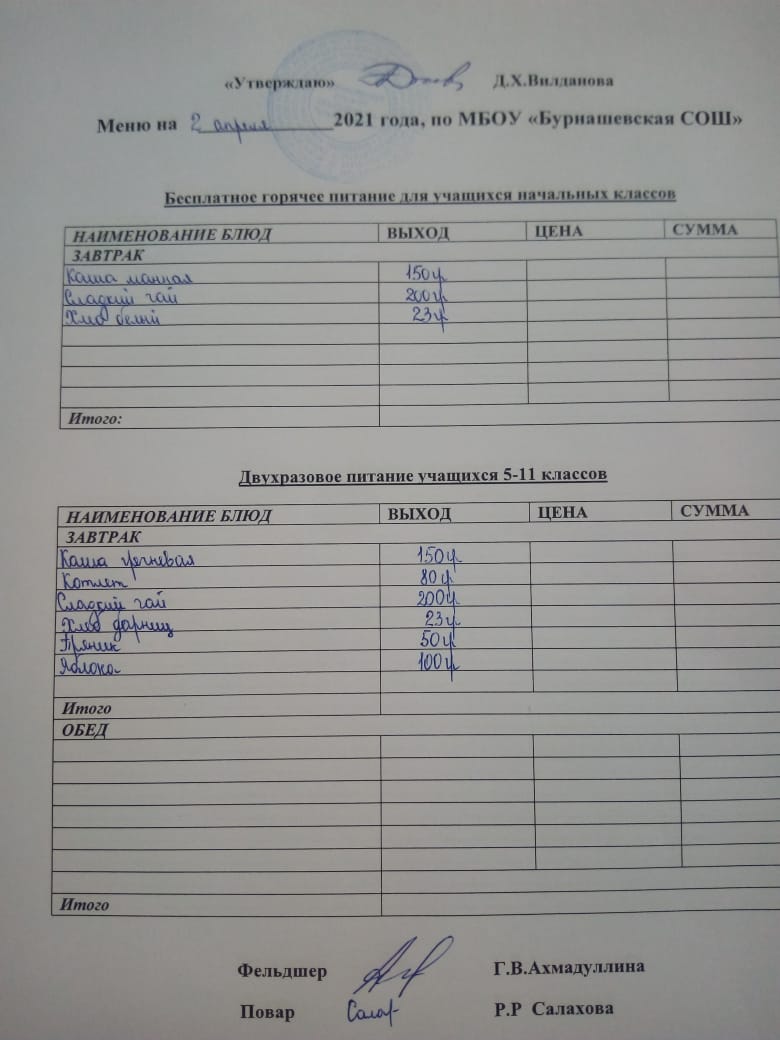 «Утверждаю» Д.Х.Вилданова
Меню на 2 апреля 2021 года, по МБОУ «Бурнашевская СОШ»
Бесплатное горячее питание для учащихся начальных классов
НАИМЕНОВАНИЕ БЛЮД ВЫХОД ЦЕНА СУММА
ЗАВТРАК
Каша манная 150гр
Сладкий чай 200гр
Хлеб белый 23гр
Итого:
Двухразовое питание учащихся 5-11 классов
НАИМЕНОВАНИЕ БЛЮД ВЫХОД ЦЕНА СУММА
ЗАВТРАК
Каша гречневая 150гр
Котлет 80гр
Сладкий чай 200гр
Хлеб дарниц 23гр
Пряник 50гр
Яблоко 100гр
Итого
ОБЕД
Итого
Фельдшер Г.В.Ахмадуллина
Повар Р.Р Салахова